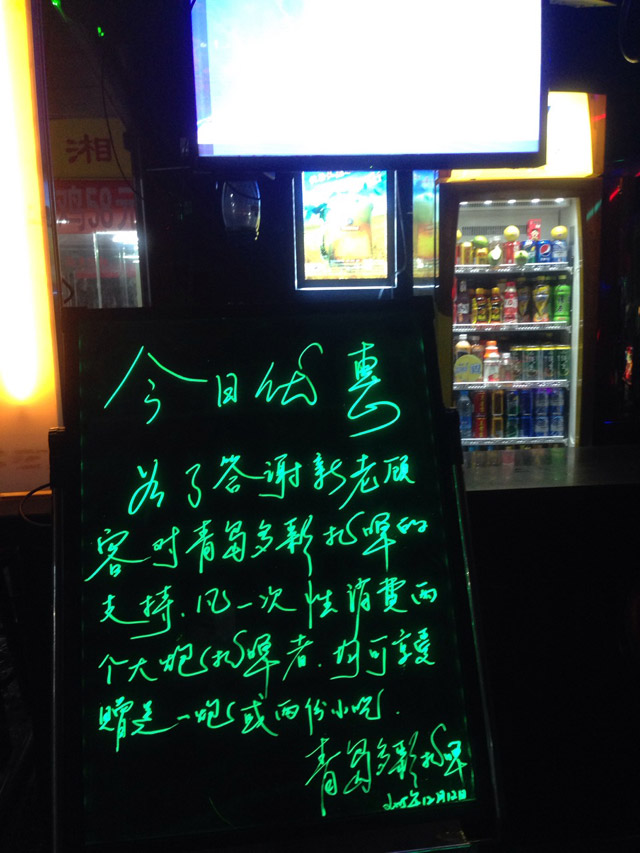 湘
今日优惠
为了答谢新老顾
客对青岛多彩扎啤的
支持.凡一次性消费两
个大炮扎啤者.均可享受
赠送一炮或两份小吃.
青岛多彩扎啤
2015年12月12日